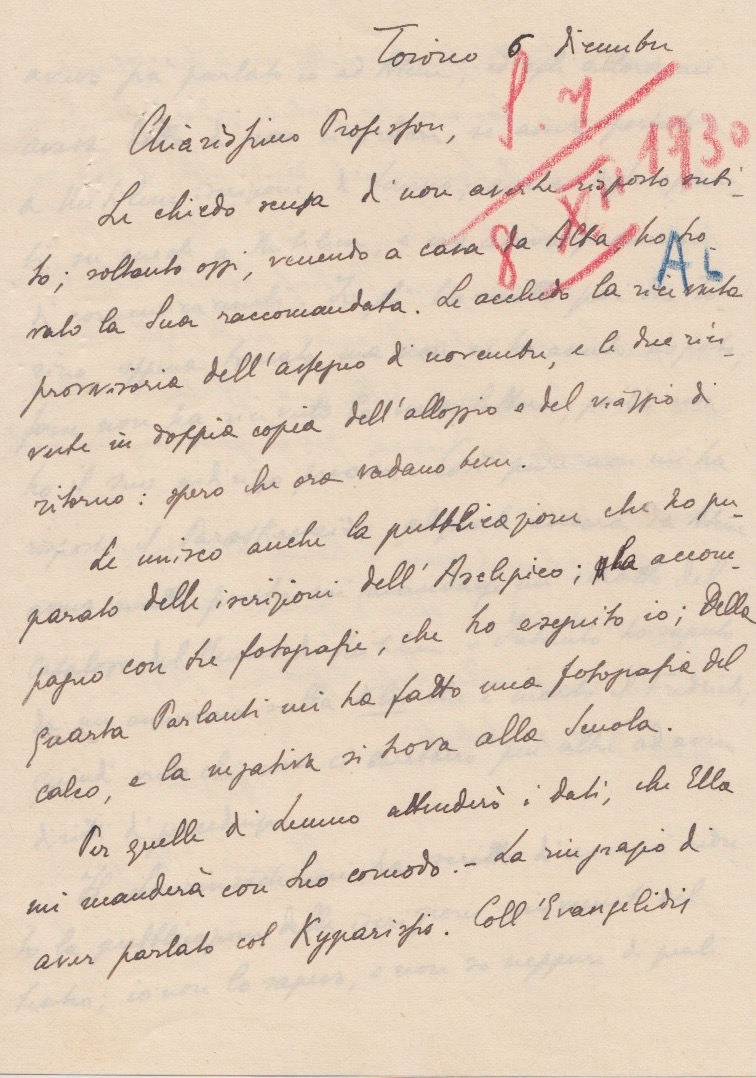 Torino 6 dicembre
S. 7
8 XII 1930
AL
Chiarissimo Professore,
Le chiedo scusa di non averLe risposto subi-
to; soltanto oggi, venendo a casa da Alba, ho tro-
vato la Sua raccomandata. Le accludo la ricevuta
provvisoria dell'assegno di novembre, e le due rice-
vute in doppia copia dell'alloggio e del viaggio di
ritorno: spero che ora vadano bene.
Le unisco anche la pubblicazione che ho pre-
parato delle iscrizioni dell'Asclepieo; la accom-
pagno con tre fotografie, che ho eseguito io; Della
quarta Parlanti mi ha fatto una fotografia del
calco, e la negativa si trova alla Scuola.
Per quelle di Lemno attenderò i dati, che Ella
mi manderà con Suo comodo. - La ringrazio di
aver parlato col Kyparissis. Coll'Evangelidis